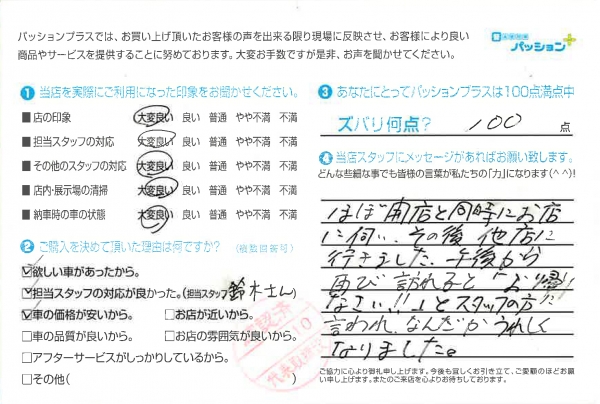 パッションプラスでは、お買い上げ頂いたお客様の声を出来る限り現場に反映させ、お客様により良い
商品やサービスを提供することに努めております。大変お手数ですが是非、お声を聞かせてください。
パッション+
① 当店を実際にご利用になった印象をお聞かせください。
■店の印象 大変良い 良い 普通 やや不満 不満
■担当スタッフの対応 大変良い 良い 普通 やや不満 不満
■その他のスタッフの対応 大変良い 良い 普通 やや不満 不満
■店内・展示場の清掃 大変良い 良い 普通 やや不満 不満
■納車時の車の状態 大変良い 良い 普通 やや不満 不満
② ご購入を決めて頂いた理由は何ですか? (複数回答可)
☑欲しい車があったから。
☑担当スタッフの対応が良かった。(担当スタッフ 鈴木さん)
☑車の価格が安いから。 □お店が近いから。
□車の品質が良いから。 □お店の雰囲気が良いから。
□アフターサービスがしっかりしているから。
□その他( )
③ あなたにとってパッションプラスは100点満点中
ズバリ何点? 100 点
④ 当店スタッフにメッセージがあればお願い致します。
どんな些細な事でも皆様の言葉が私たちの「力」になります(^ ^)!
ほぼ開店と同時にお店
に伺い、その後他店に
行きました。午後から
再び訪れると「お帰り
なさい!!」とスタッフの方に
言われ、なんだかうれしく
なりました。
ご協力に心より御礼申し上げます。今後も宜しくお引き立て、ご愛顧のほどお願
い申し上げます。またのご来店を心よりお待ちしております。